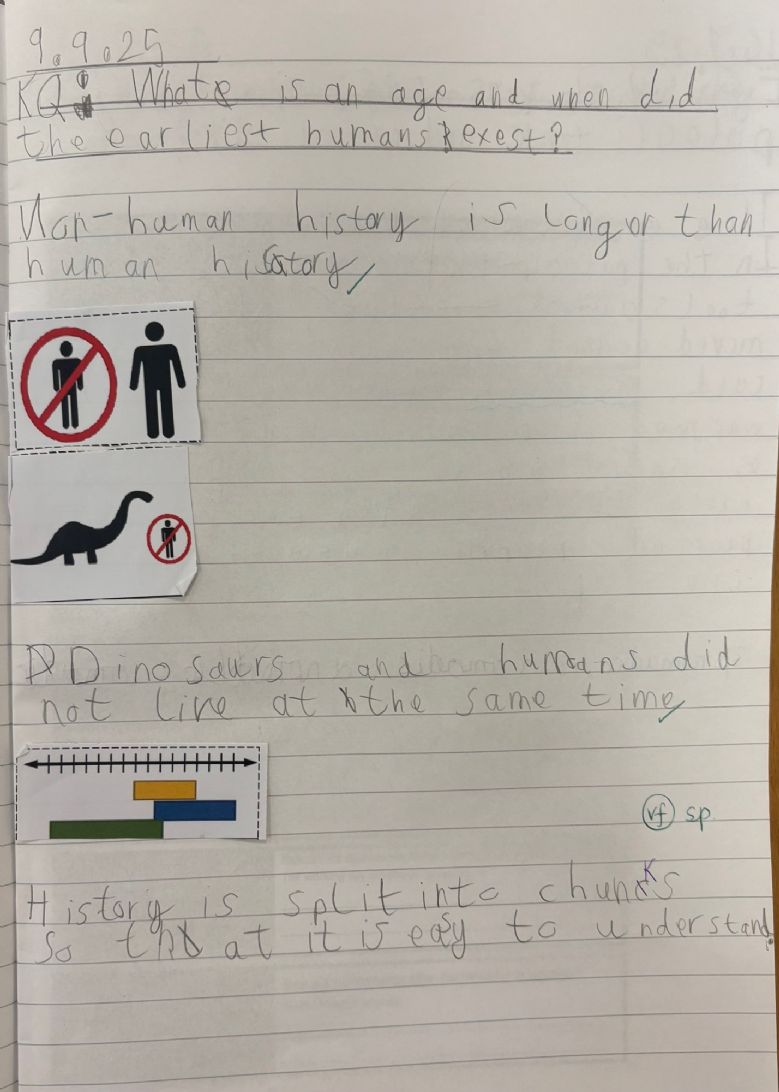 9.9.25
KQ: What is an age and when did
the earliest humans exest?
Non-human history is longor than
human history
Dinosaurs and humans did
not live at the same time
vf sp.
History is split into chunks
so that it is easy to understand.